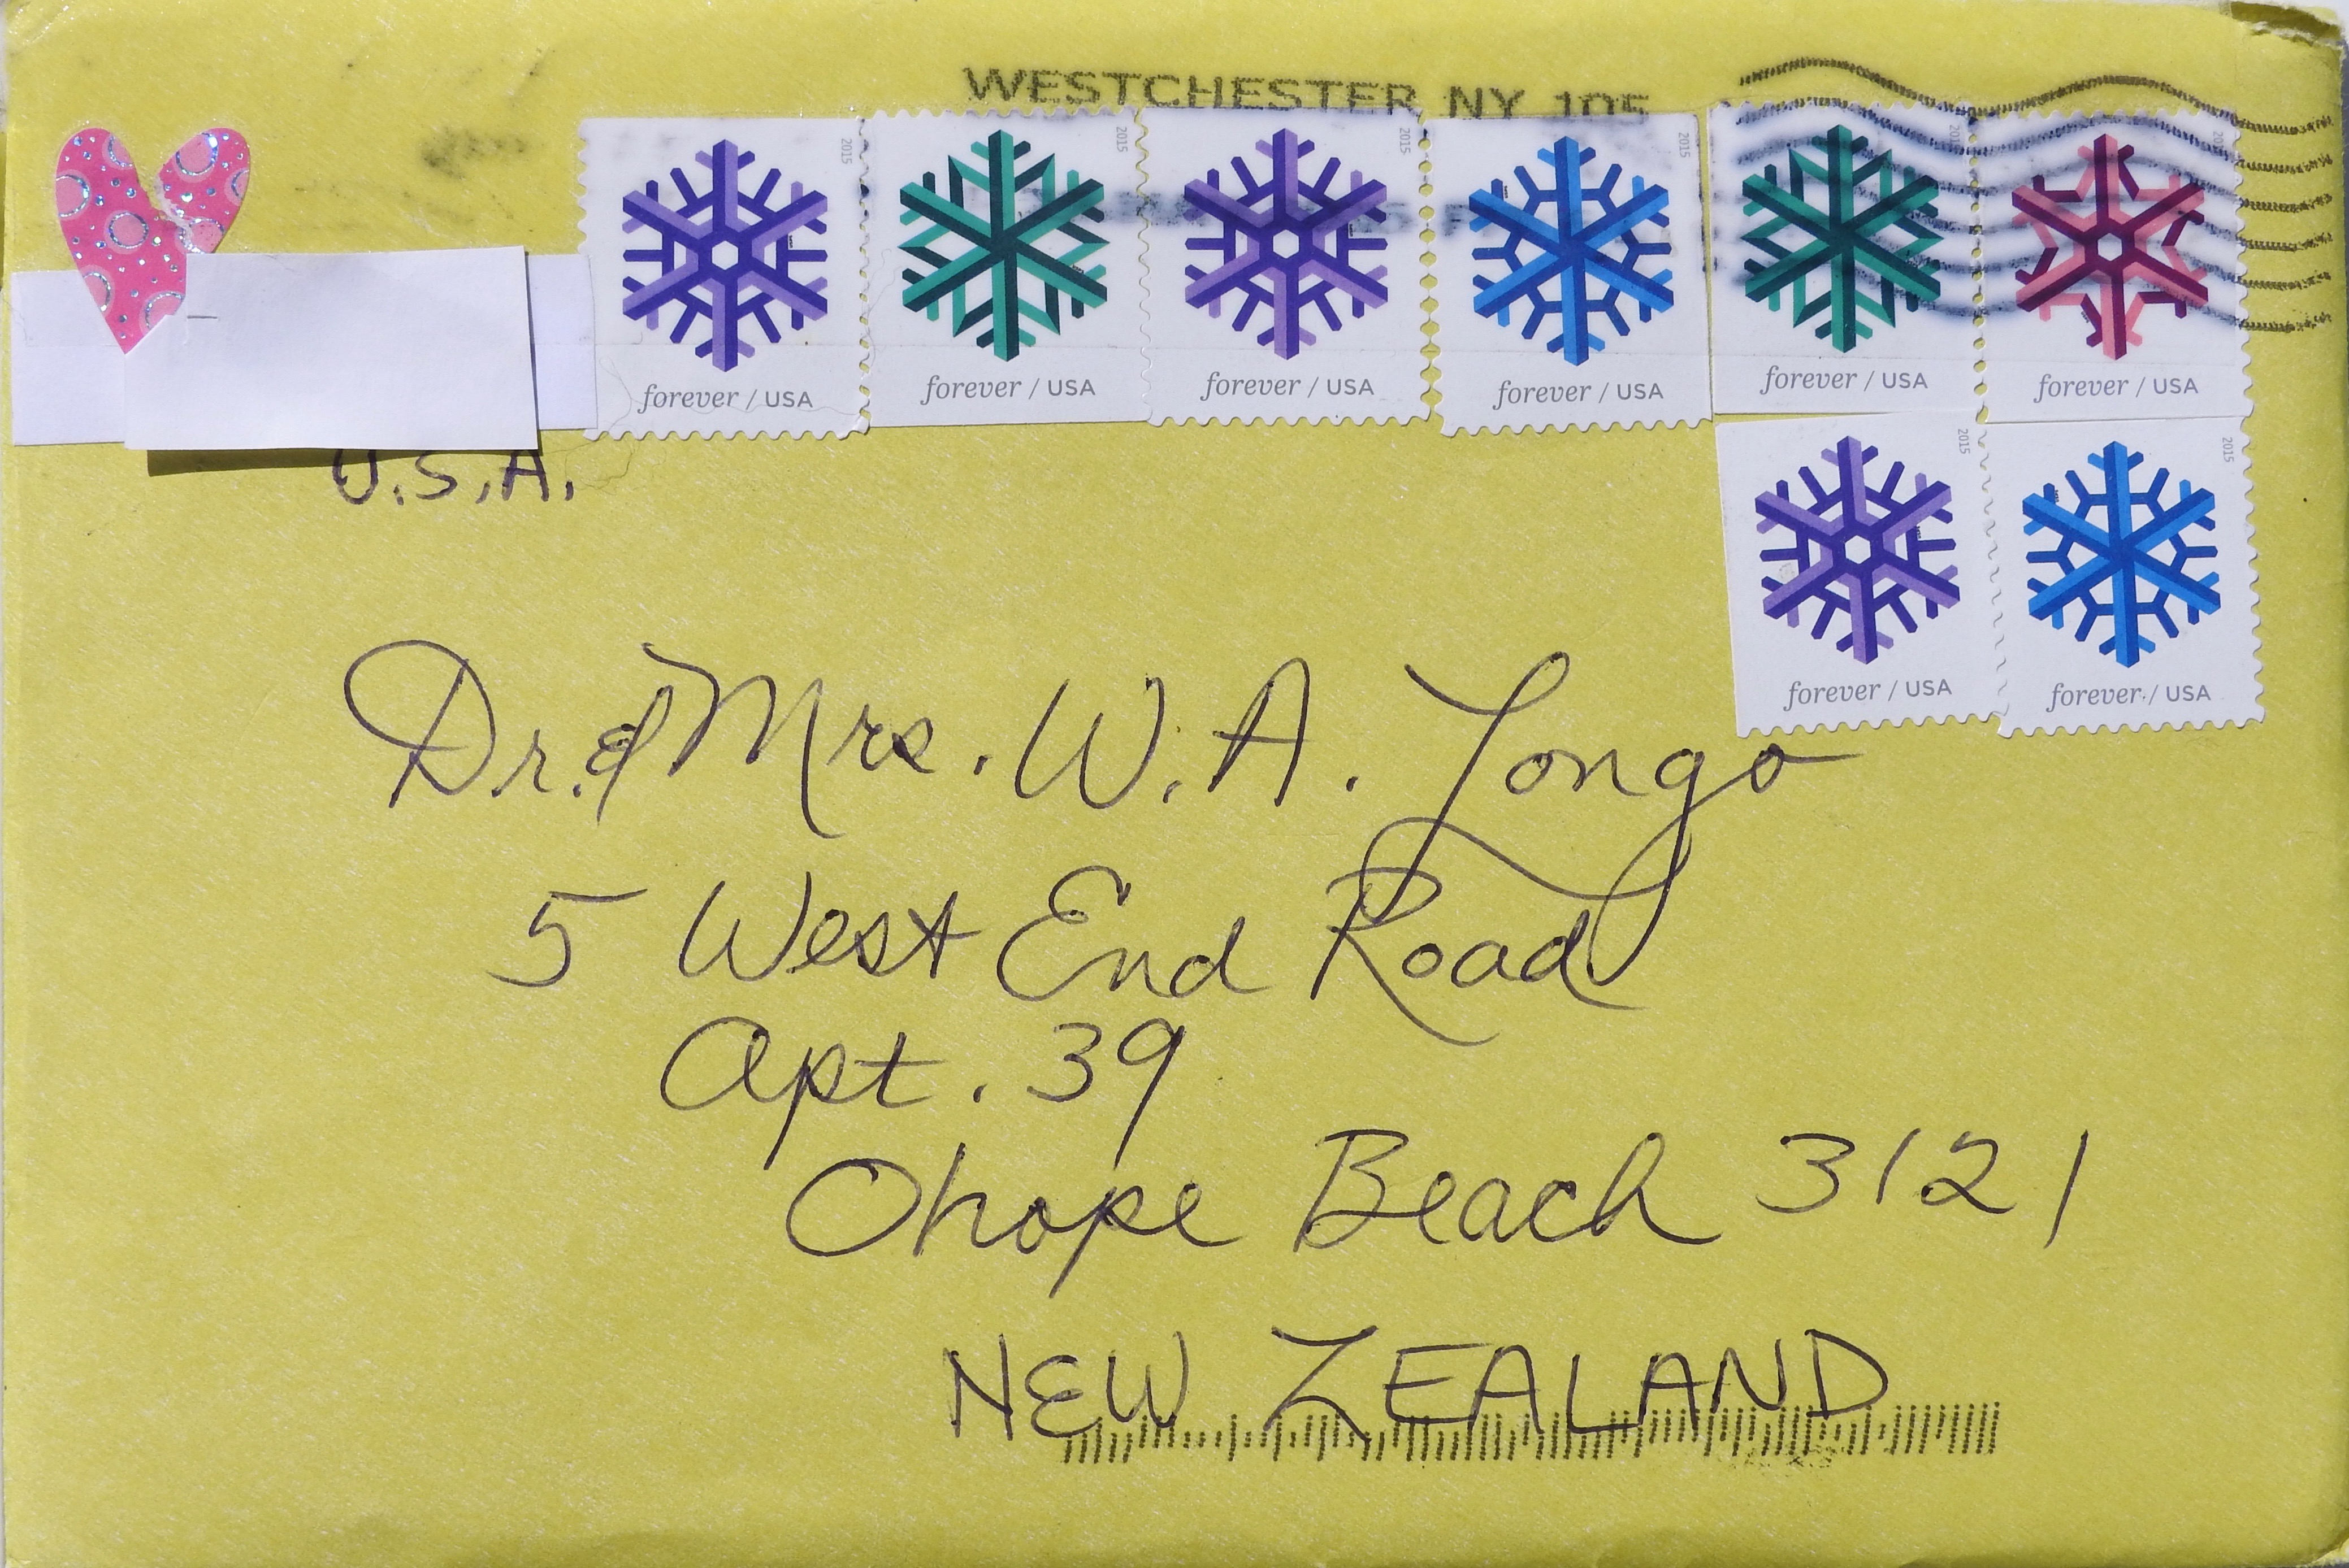 WESTCHESTER NY 105
2015
2015
2015
2015
forever / USA
forever / USA
forever / USA
forever / USA
forever / USA
forever / USA
U.S.A.
2015
2015
forever / USA
forever / USA
Dr. & Mrs. W. A. Longo
5 West End Road
Apt. 39
Ohope Beach 3121
NEW ZEALAND